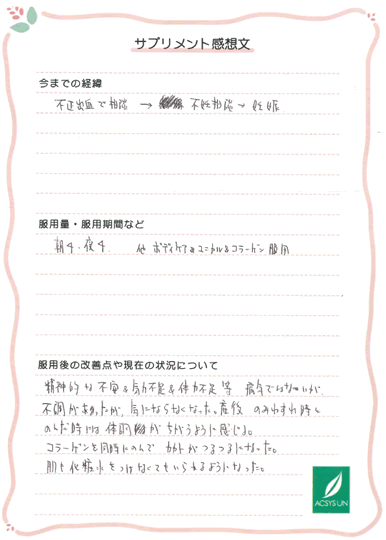 サプリメント感想文
今までの経緯
不正出血で相談 → 不妊相談 〜 妊娠
服用量・服用期間など
朝4・夜4 他 ボディケア&ミネラル&コラーゲン 服用
服用後の改善点や現在の状況について
精神的な不安&気力不足&体力不足等 病気ではないが、
不調があったが、気にならなくなった。産後 のみわすれ時と
のんだ時には体調が ちがうように感じる。
コラーゲンを同時にのんで カカトがつるつるになった。
肌も化粧水をつけなくてもいられるようになった。
ACSYS UN